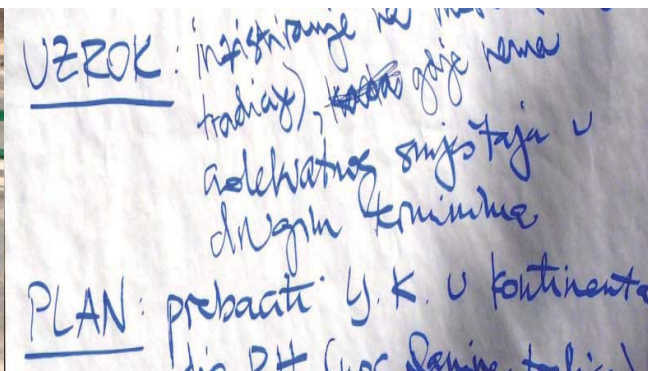 UZROK: inzistiranje na
tradicije), gdje nema
adekvatnog smještaja u
drugim terminima
PLAN: prebaciti Y.K. u kontinenta
dio RH